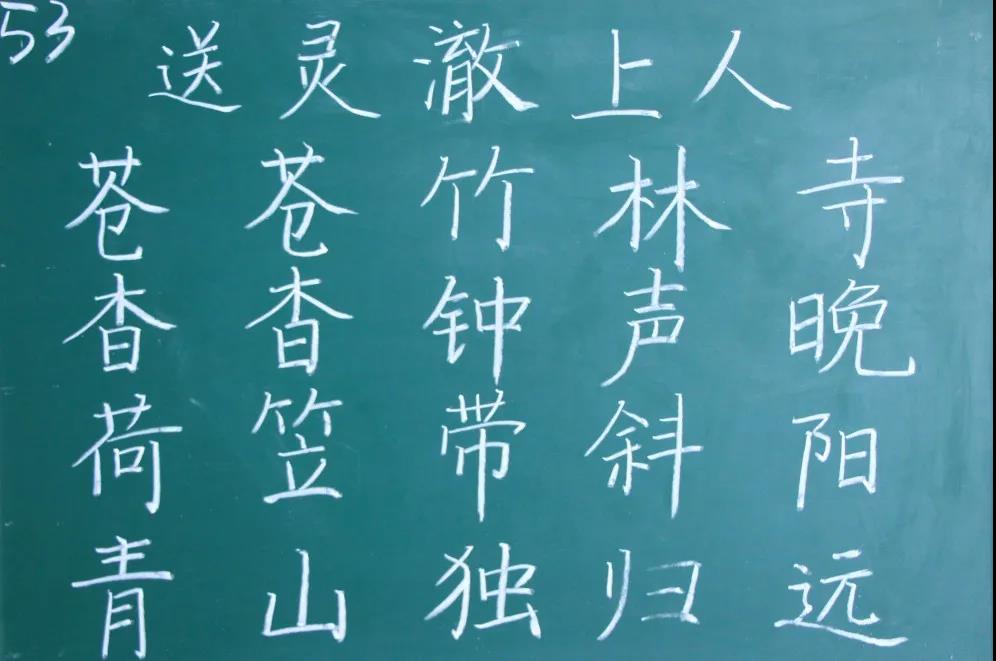 53
送灵澈上人
苍苍竹林寺
杳杳钟声晚
荷笠带斜阳
青山独归远